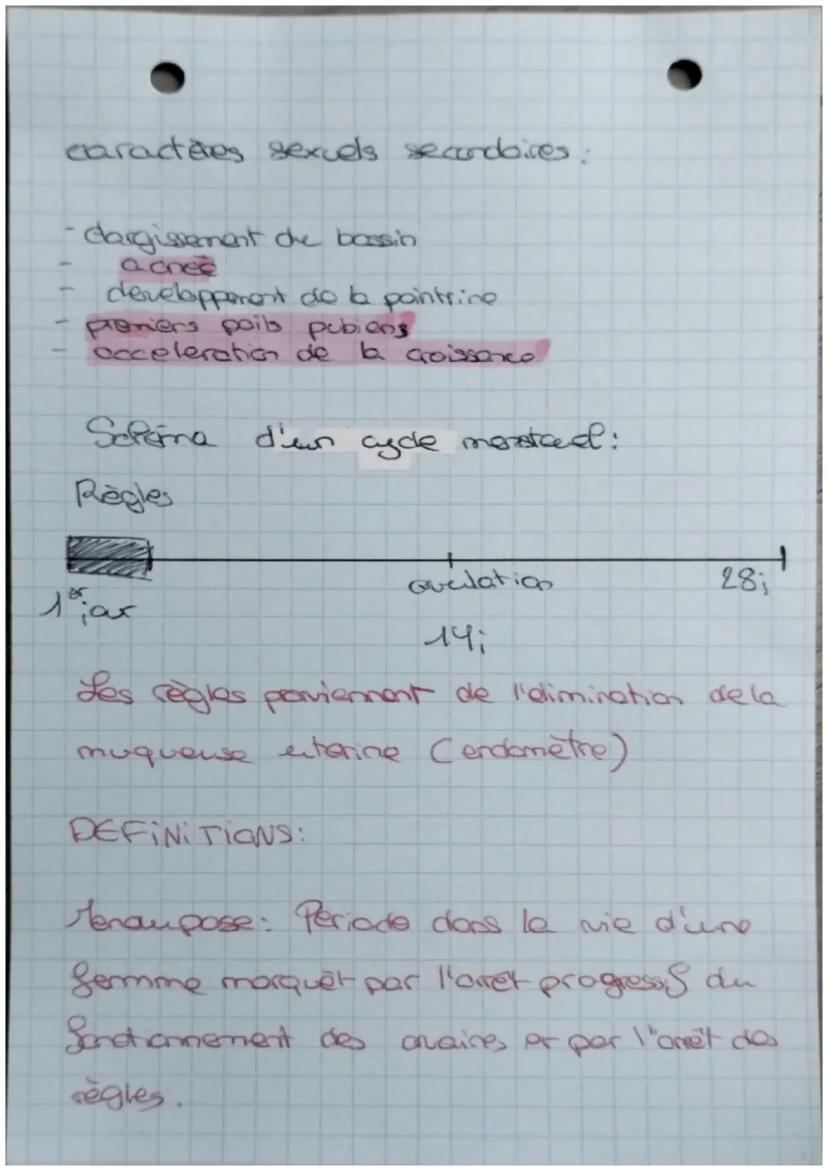 caractères sexuels secondaires :
- élargissement du bassin
- acnée
- développement de la pointrine
- premiers poils pubiens
- acceleration de la croissance
Schéma d'un cycle menstruel :
Règles
ovulation
28j
1er jour
14j
Les règles proviennent de l'élimination de la
muqueuse uterine (endomètre)
DEFINITIONS:
Menaupose : Période dans la vie d'une
femme marquêt par l'arrêt progressif du
fonctionnement des ovaires et par l'arrêt des
règles.